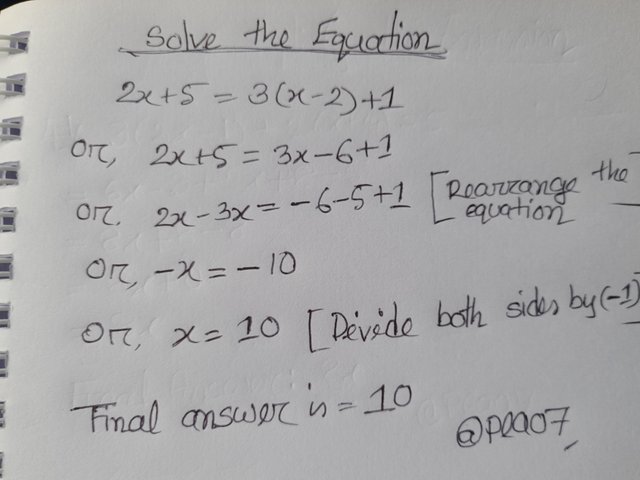 Solve the Equation
2x+5 = 3(x-2)+1
or, 2x+5 = 3x-6+1
or, 2x-3x = -6-5+1 [Rearrange the equation
or, -x = -10
or, x = 10 [Devide both sides by (-1)]
Final answer is = 10
@pea07